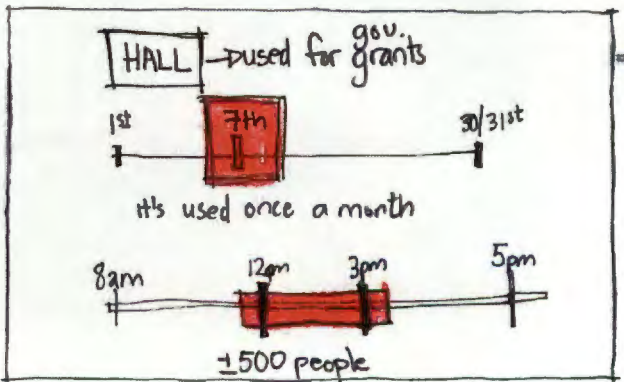 HALL → used for gov. grants
1st 7th 30/31st
it's used once a month
8am 12pm 3pm 5pm
±500 people